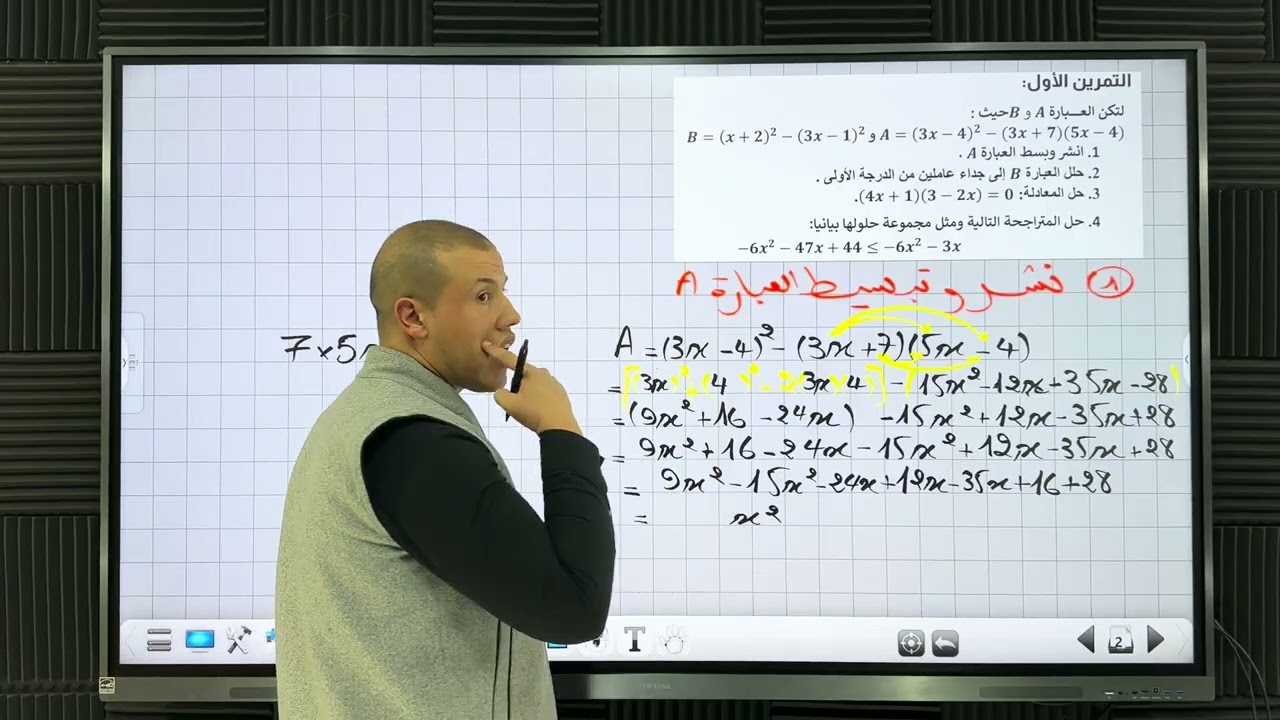 التمرين الأول:
لتكن العبارة A و B حيث :
B = (x + 2)² − (3x − 1)² و A = (3x − 4)² − (3x + 7)(5x − 4)
1. انشر وبسط العبارة A .
2. حلل العبارة B إلى جداء عاملين من الدرجة الأولى .
3. حل المعادلة: (4x + 1)(3 − 2x) = 0.
4. حل المتراجحة التالية ومثل مجموعة حلولها بيانيا:
−6x² − 47x + 44 ≤ −6x² − 3x
① نشر و تبسيط العبارة A
7×5
A = (3x - 4)² - (3x + 7)(5x - 4)
= [(3x)² + (4)² - 2(3x×4)] - (15x² - 12x + 35x - 28)
= (9x² + 16 - 24x) - 15x² + 12x - 35x + 28
= 9x² + 16 - 24x - 15x² + 12x - 35x + 28
= 9x² - 15x² - 24x + 12x - 35x + 16 + 28
= x²
T
2